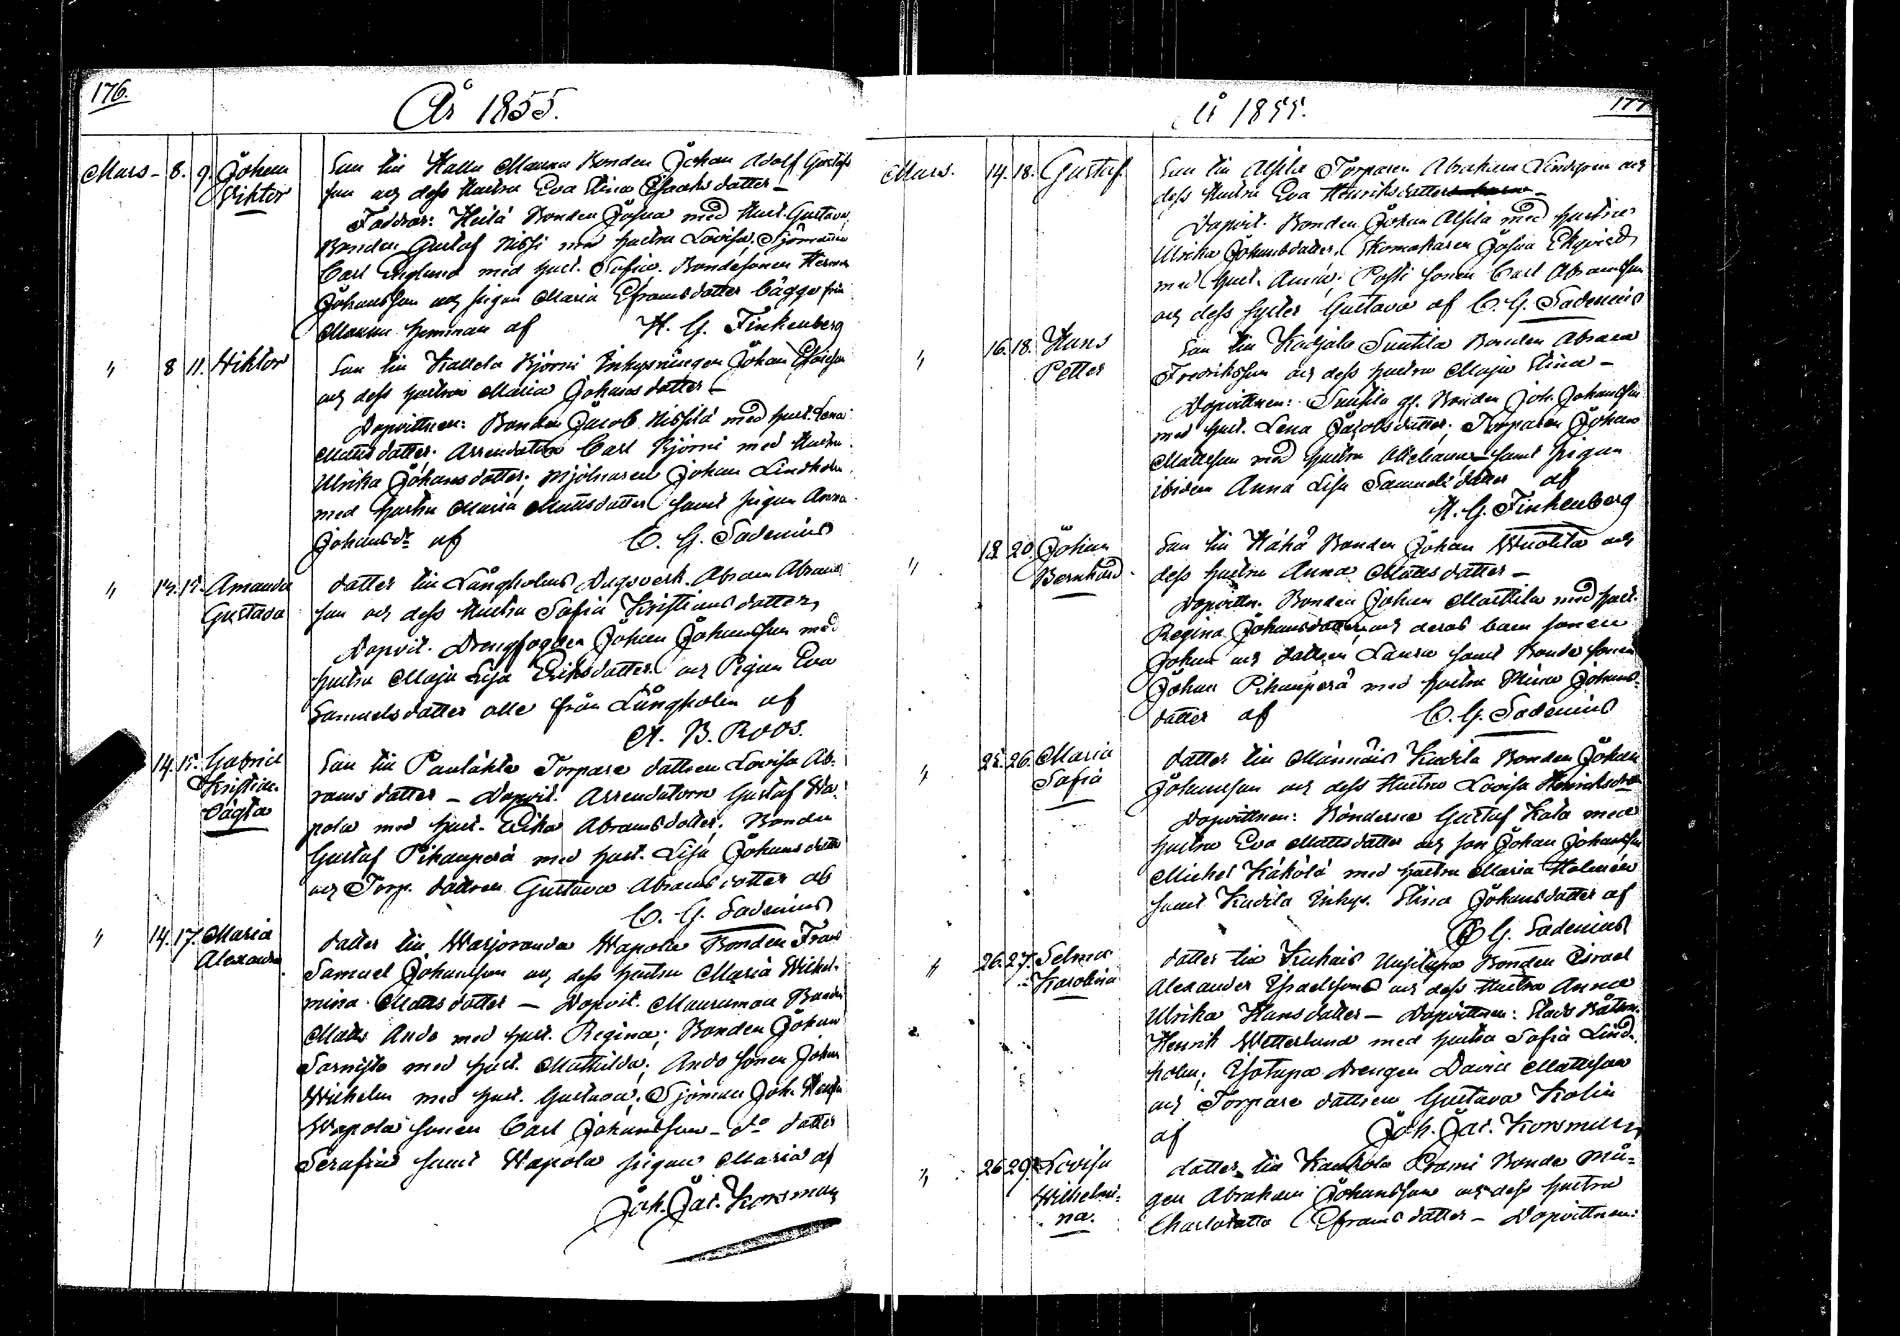 176.
År 1855.
Mars - 8. 9. Johan Viktor
Son till Kallu Maunu Bonden Johan Adolf Gustafs
son och dess Hustru Eva Stina Isaaks datter -
Faddrar: Heilä Bonden Josua med Hust. Gustava,
Bonden Gustaf Nissi med hustru Lovisa. Sjömannen
Carl Englund med hust. Sofia. Bondesonen Herman
Johansson och pigan Maria Eframsdatter bägge från
Maunu hemman af H. G. Finkenberg
" 8 11. Viktor
Son till Kallela Björni Inhysningen Johan
och dess hustru Maria Johans datter -
Dopvittnen: Bonden Jacob Nissilä med hust. Lena
Matts datter. Arrendatorn Carl Björni med Hustru
Ulrika Johansdatter; Mjölnaren Johan Lindholm
med hustru Maria Mattsdatter samt pigan Anna
Johansdr af C. G. Sadenius
" 15. Amanda Gustava
datter till Långholms Dagsverk. Abram Abrams
son och dess Hustru Sofia Kristians datter,
Dopvit. Drengfogden Johan Johansson med
hustru Maja Lisa Eriksdatter och Pigan Eva
Samuelsdatter alle från Långholm af
A. B. Roos.
14. 15. Gabriel Kristian oägta
Son till Pantäkla Torpare dattren Lovisa Ab-
rams datter - Dopvit. Arrendatorn Gustaf Wa-
pola med hust. Ulrika Abramsdatter. Bonden
Gustaf Pihanperä med hust. Lisa Johans datter
och Torp. dattren Gustava Abrams datter af
C. G. Sadenius
" 14. 17. Maria Alexandra
datter till Warjoranda Wapola Bonden Frans
Samuel Johansson och dess hustru Maria Wilhel-
mina Matts datter - Dopvit. Maurumaa Bonden
Matts Ando med hust. Regina; Bonden Johan
Sarnisto med hust. Mathilda. Ando sonen Johan
Wilhelm med hust. Gustava; Sjöman Joh.
Wapola sonen Carl Johansson - do datter
Serafina samt Wapola pigan Maria af
Joh. Jac. Korsman
År 1855.
177
Mars. 14. 18. Gustaf
Son till Alsila Torparen Abraham Lindgren och
dess Hustru Eva Henriksdatter -
Dopvit. Bonden Johan Alsila med hustru
Ulrika Johansdatter. Skomakaren Josua Ekqvist
med hust. Anna; Posti sonen Carl Abramsson
och dess syster Gustava af C. G. Sadenius
" 16. 18. Hans Petter
Son till Karjala Suutila Bonden Abram
Fredriksson och dess hustru Maja Stina -
Dopvittnen: Suutila gl. Bonden Joh. Johansson
med hust. Lena Jacobsdatter; Torparen Johan
Mattsson med hustru samt pigan
ibidem Anna Lisa Samuels datter af
H. G. Finkenberg
" 18. 20 Johan Bernhard
Son till Bonden Johan Wuolila och
dess hustru Anna Matts datter -
Dopvittn. Bonden Johan Mattila med hust.
Regina Johansdatter och deras barn sonen
Johan och dattren Laura samt Bonde sonen
Johan Pihanperä med hustru Stina Johans-
datter af C. G. Sadenius
" 25. 26. Maria Sofia
datter till Männäis Kurila Bonden Johan
Johansson och dess Hustru Lovisa Henriksdr
Dopvittnen: Bönderne Gustaf Kola med
hustru Eva Matts datter och son Johan Johansson
Michel Käkölä med hustru Maria Holmén
samt Kurila Inhys. Stina Johansdatter af
C. G. Sadenius
" 26. 27. Selma Karolina
datter till Kuhais Uusitupa Bonden Israel
Alexander Israelsson och dess Hustru Anna
Ulrika Hansdatter - Dopvittnen: Stads
Henrik Wetterlund med hustru Sofia Lind-
holm; Isotupa Drengen David Mattsson
och Torpare dattren Gustava Kolin
af Joh. Jac. Korsman
" 26 29. Lovisa Wilhelmi-
na.
datter till Kankola Prami Bonde Må-
gen Abraham Johansson och dess hustru
Charlotta Eframs datter - Dopvittnen: